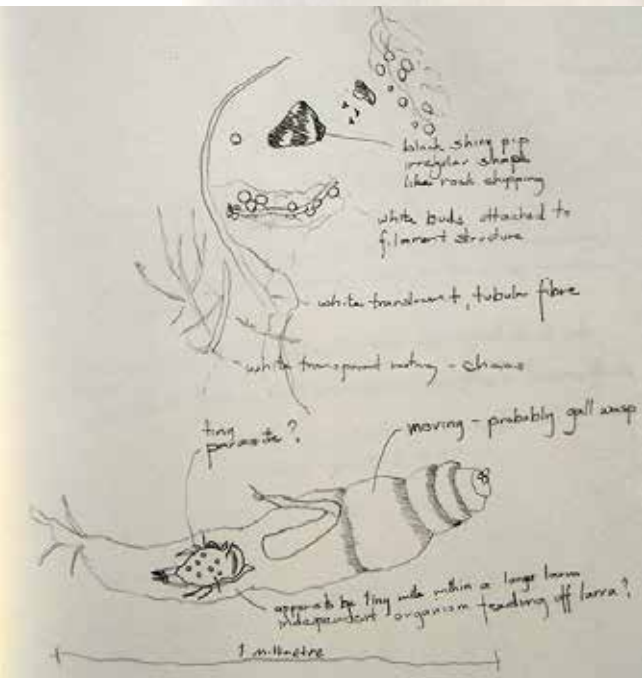 black shiny pip
irregular shape
like rock chipping
white buds attached to
filament structure
white translucent, tubular fibre
white transparent matting - chaos
tiny
parasite?
moving - probably gall wasp
appears to be tiny mite within a large larva
independent organism feeding off larva?
1 millimetre